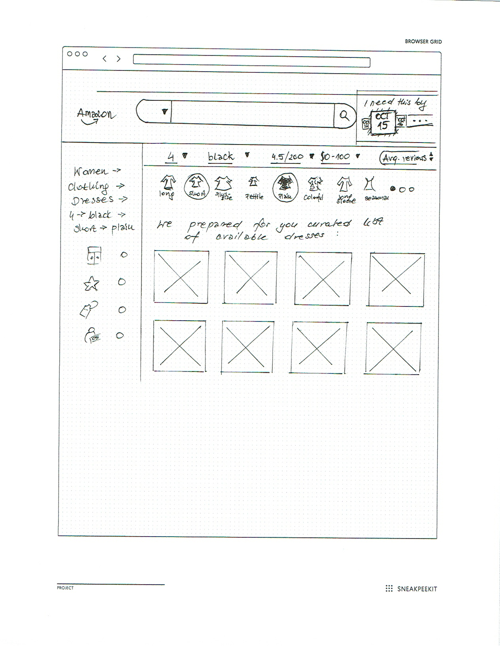 BROWSER GRID
Amazon
I need this by
OCT
15
4 black 4.5/200 $0-100 Avg. reviews
Women →
Clothing →
Dresses →
4 → black →
short → plain
long short petite plain colorful
We prepared for you curated list
of available dresses:
PROJECT
SNEAKPEEKIT